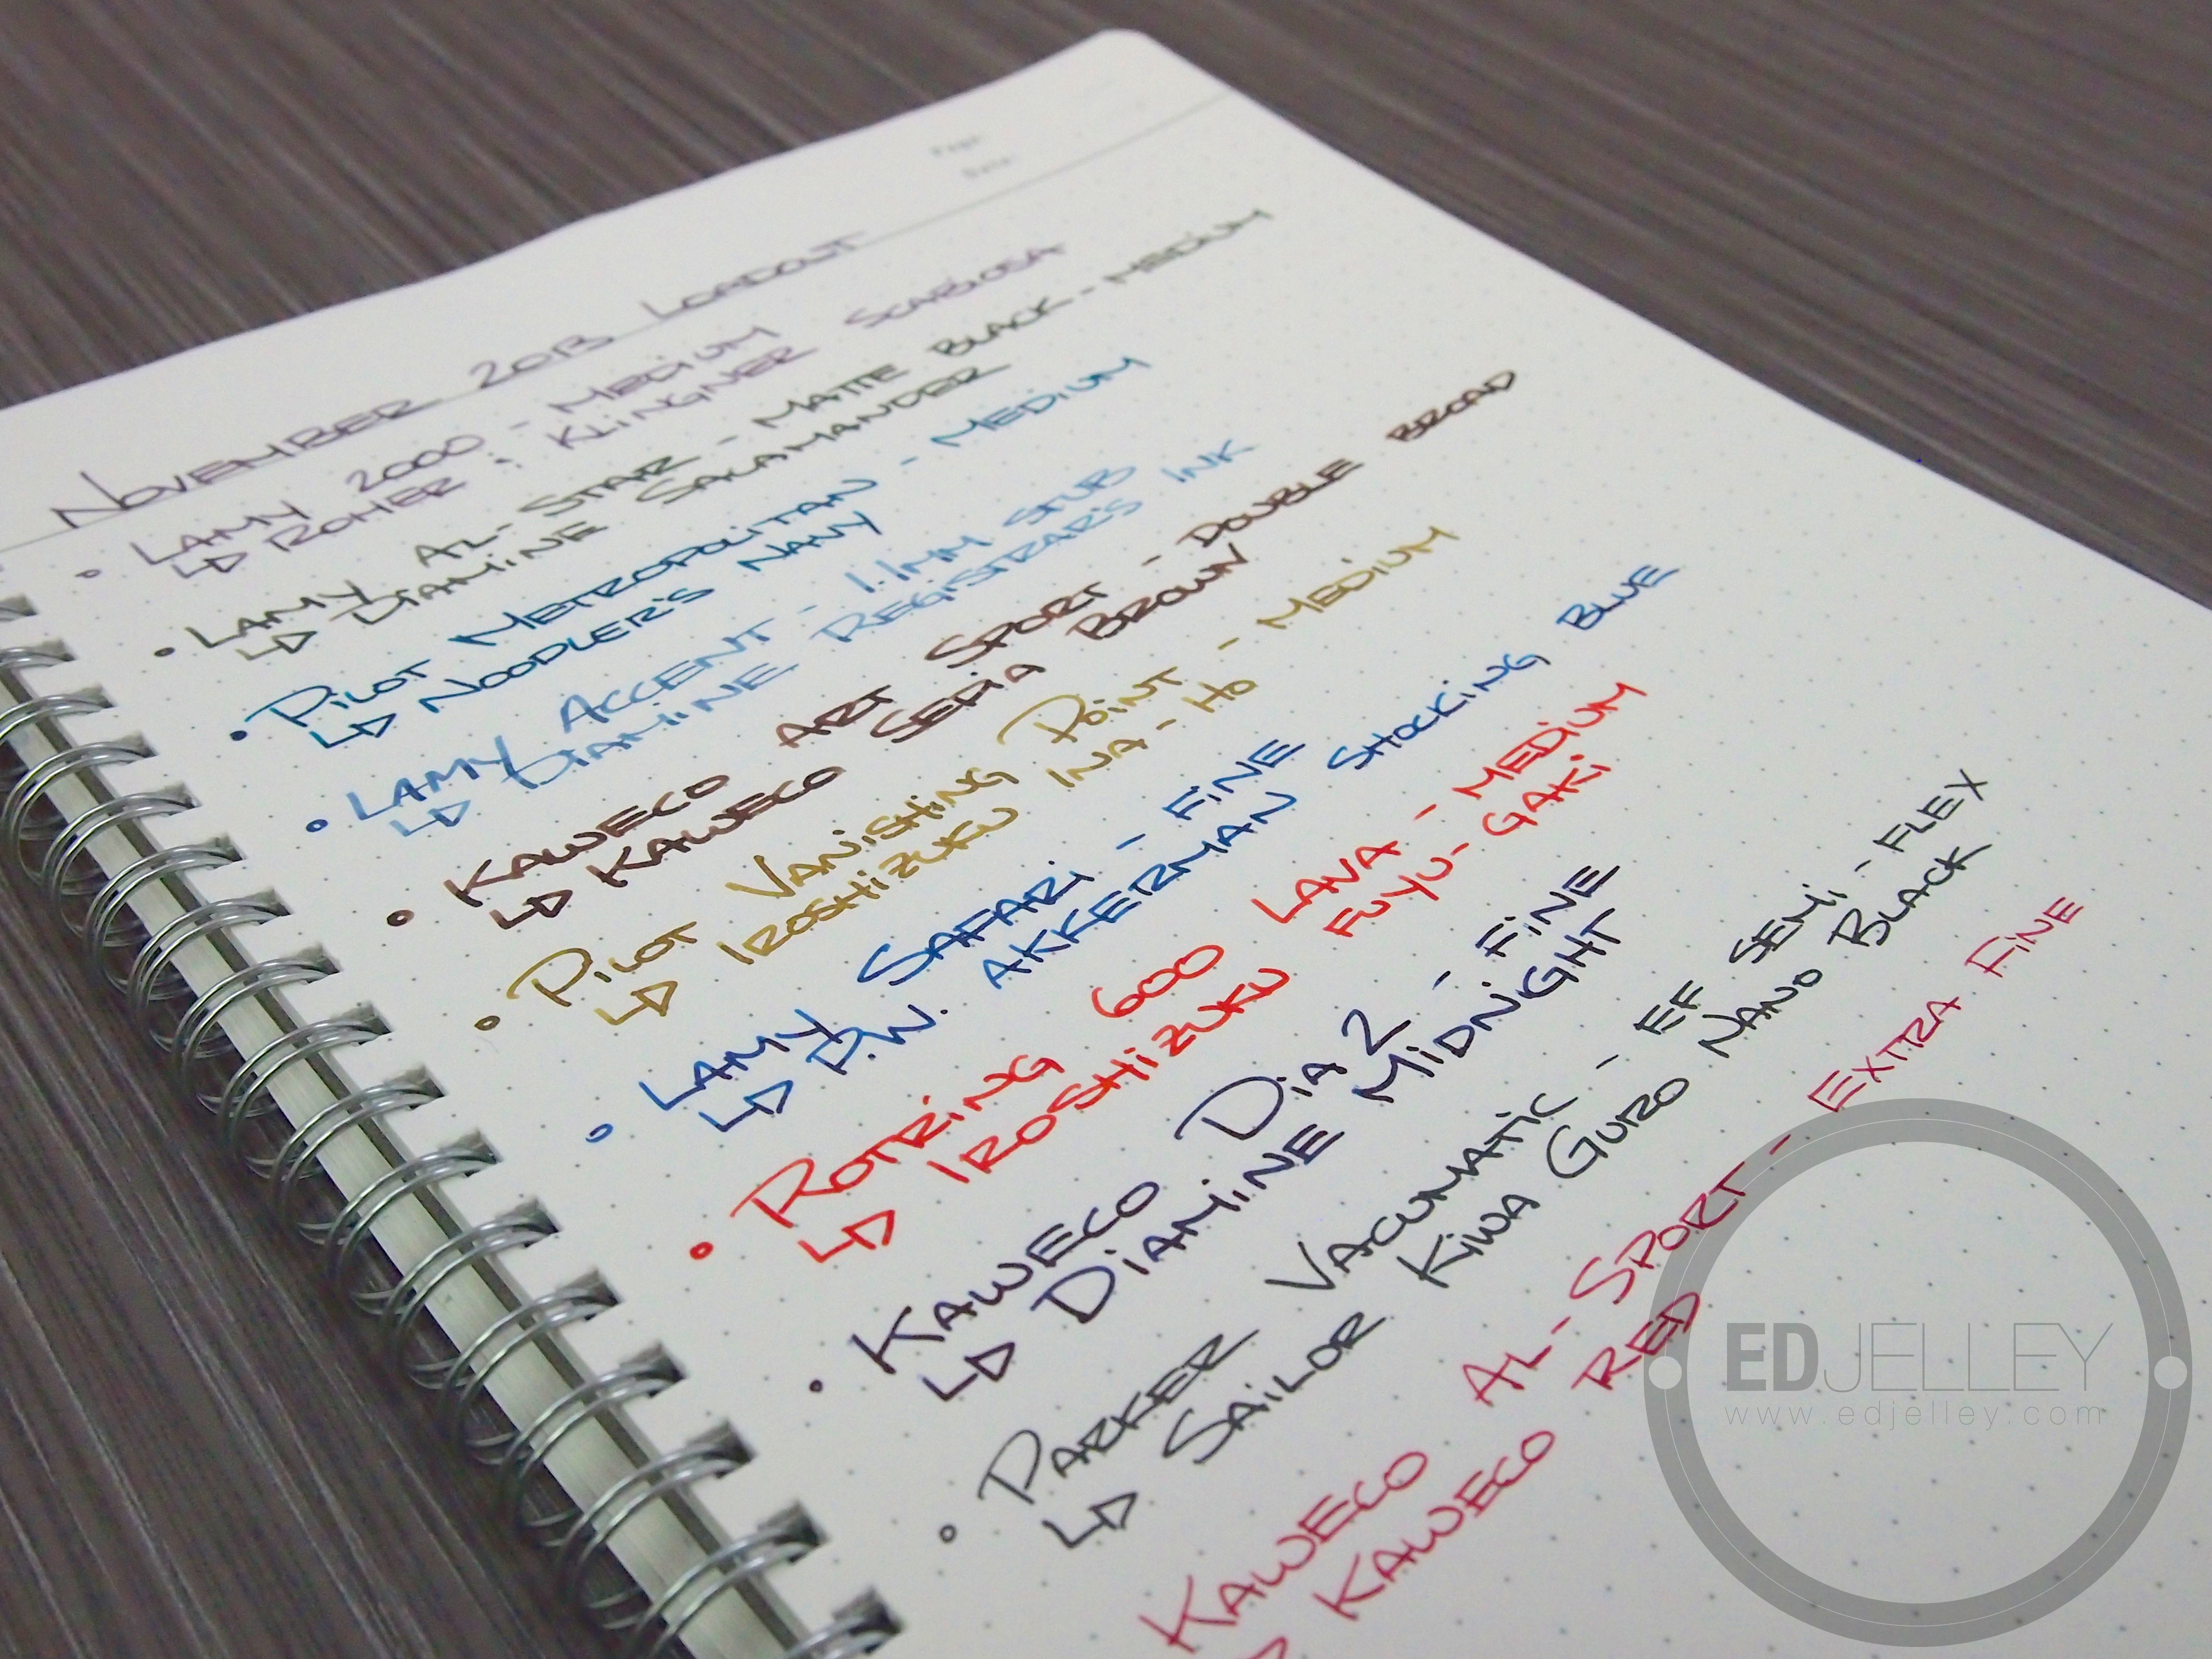 Page:
Date:
NOVEMBER 2013 LOADOUT
• LAMY 2000 - MEDIUM
↳ ROHER & KLINGNER SCABIOSA
• LAMY AL-STAR - MATTE BLACK - MEDIUM
↳ DIAMINE SALAMANDER
• PILOT METROPOLITAN - MEDIUM
↳ NOODLER'S NAVY
• LAMY ACCENT - 1.1MM STUB
↳ DIAMINE REGISTRAR'S INK
• KAWECO ART SPORT - DOUBLE BROAD
↳ KAWECO SEPIA BROWN
• PILOT VANISHING POINT - MEDIUM
↳ IROSHIZUKU INA-HO
• LAMY SAFARI - FINE
↳ P.W. AKKERMAN SHOCKING BLUE
• ROTRING 600 LAVA - MEDIUM
↳ IROSHIZUKU FUYU-GAKI
• KAWECO DIA 2 - FINE
↳ DIAMINE MIDNIGHT
• PARKER VACUMATIC - EF SEMI-FLEX
↳ SAILOR KIWA GURO NANO BLACK
KAWECO AL-SPORT - EXTRA FINE
↳ KAWECO RED
EDJELLEY
www.edjelley.com